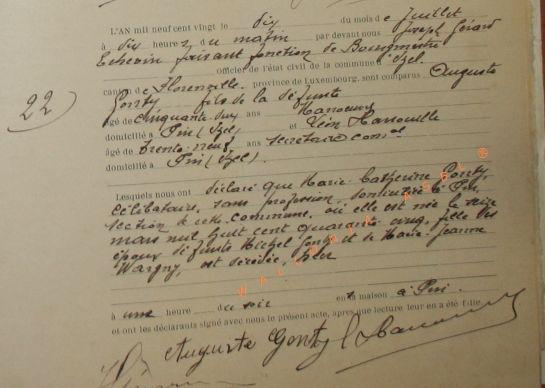 22
L'AN mil neuf cent vingt le dix du mois de Juillet
à dix heures du matin par devant nous Joseph Gérard
Echevin faisant fonction de Bourgmestre
Officier de l'état civil de la commune d'Izel
canton de Florenville, province de Luxembourg, sont comparus Auguste
Gonty fils de la défunte
âgé de cinquante deux ans Manoeuvre
domicilié à Pin (Izel) et Léon Hanouille
âgé de trente-neuf ans secrétaire com.al
domicilié à Pin (Izel).
Lesquels nous ont déclaré que Marie Catherine Gonty,
célibataire, sans profession, domiciliée à Pin,
section de cette commune, où elle est née le seize
mars mil huit cent quarante cinq, fille des
époux défunts Michel Gonty et de Marie Jeanne
Wargny, est décédée, hier
à une heure du soir en sa maison à Pin.
et ont les déclarants signé avec nous le présent acte, après que lecture leur en a été faite.
Auguste Gonty